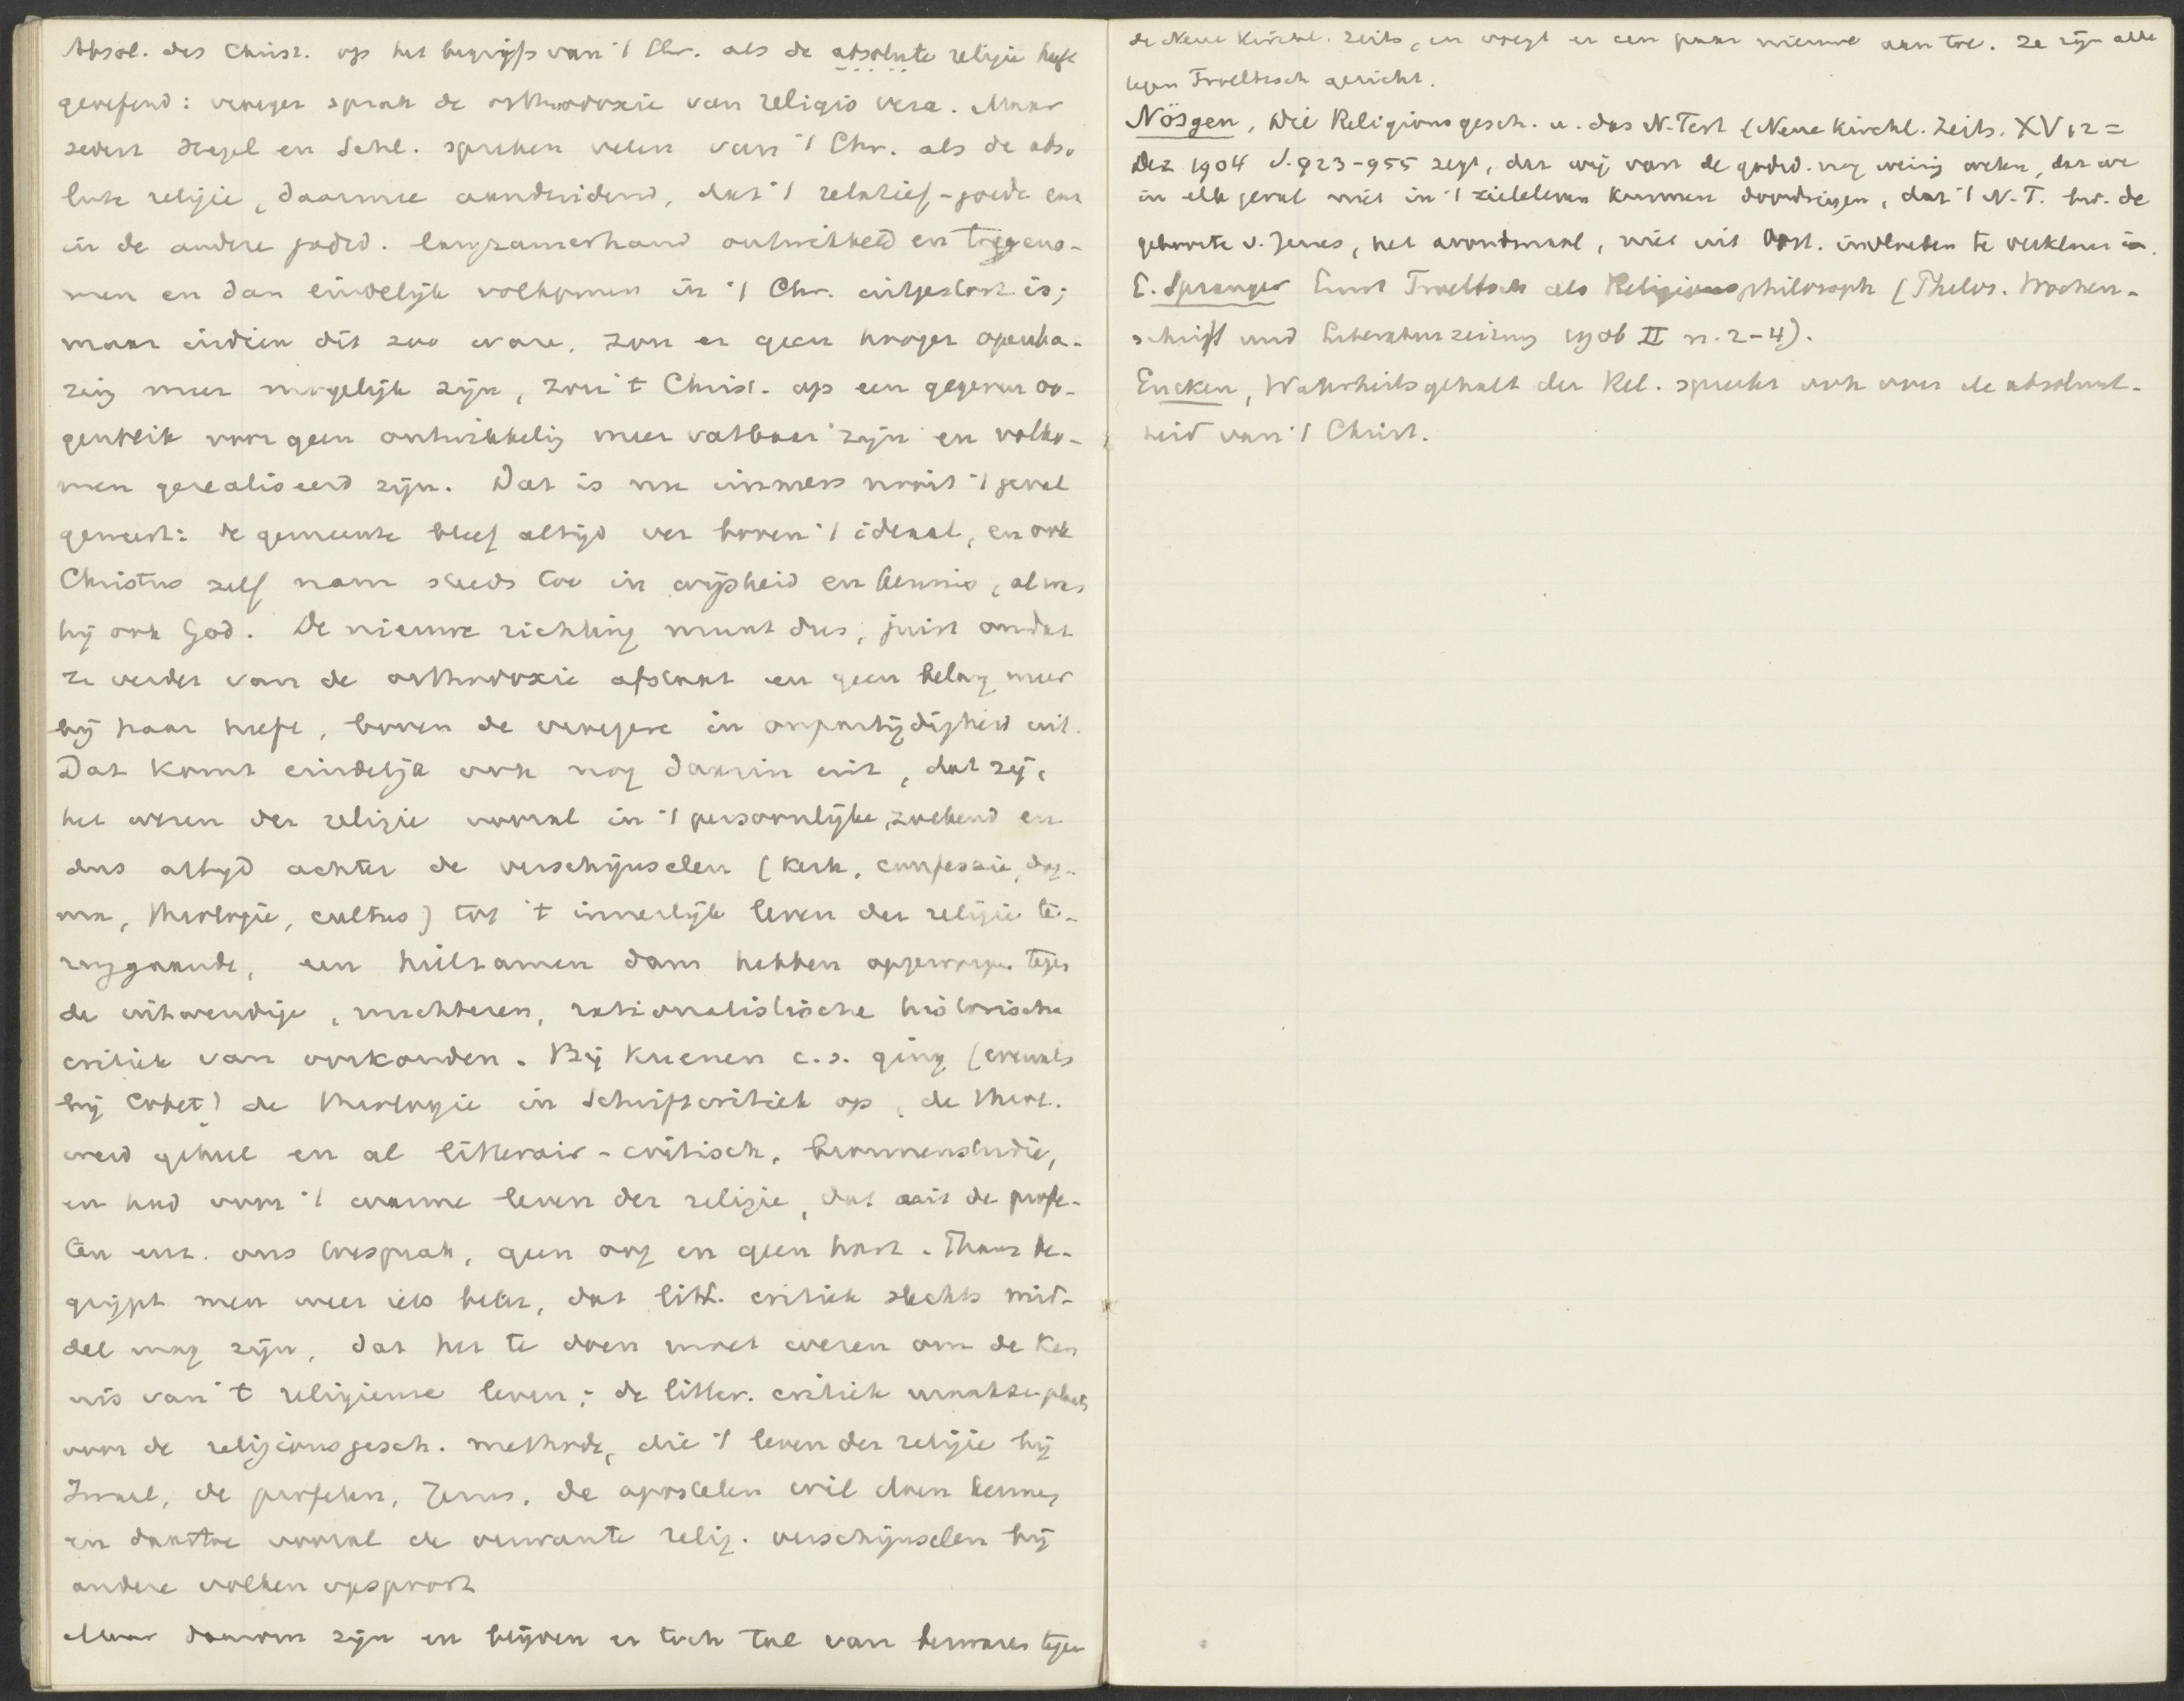 Absol. des Christ. op het begrip van 't Chr. als de absolute religie heeft
geoefend: vroeger sprak de orthodoxie van religio vera. Maar
sedert Hegel en Schl. spreken velen van 't Chr. als de abso
lute religie, daarmee aanduidend, dat 't relatief-goede enz
in de andere godsd. langzamerhand ontwikkeld en toegeno-
men en dan eindelijk volkomen in 't Chr. uitgestort is;
maar indien dit zoo ware, zou er geen hooger openba-
ring meer mogelijk zijn, zou 't Christ. op een gegeven oo-
genblik voor geen ontwikkeling meer vatbaar zijn en volko-
men gerealiseerd zijn. Dat is nu immers nooit 't geval
geweest: de gemeente bleef altijd ver boven 't ideaal, en ook
Christus zelf nam steeds toe in wijsheid en kennis, al was
hij ook God. De nieuwe richting munt dus, juist omdat
ze verder van de orthodoxie afstaat en geen belang meer
bij haar heeft, boven de vroegere in onpartijdigheid uit.
Dat komt eindelijk ook nog daarin uit, dat zij,
het wezen der religie vooral in 't persoonlijke, zoekend en
dus altijd achter de verschijnselen (kerk, confessie, dog-
ma, theologie, cultus) tot 't innerlijk leven der religie te-
ruggaande, een heilzamen dam hebben opgeworpen tegen
de uitwendige, nuchteren, rationalistische historische
critiek van oorkonden. Bij Kuenen c.s. ging (evenals
bij Cobet) de theologie in Schriftcritiek op, de theol.
werd geheel en al litterair-critisch, bronnenstudie,
en had voor 't warme leven der religie, dat uit de profe-
ten enz. ons toesprak, geen oog en geen hart. Thans be-
grijpt men weer iets beter, dat litt. critiek slechts mid-
del mag zijn, dat het te doen moet wezen om de ken
nis van 't religieuse leven; de litter. critiek maakte plaats
voor de religionsgesch. methode, die 't leven der religie bij
Israel, de profeten, Jezus, de apostelen wil doen kennen
en daartoe vooral de verwante relig. verschijnselen bij
andere volken opspoort
Maar daarom zijn en blijven er toch tal van bezwaren tegen
de Neue Kirchl. Zeits, en voegt er een paar nieuwe aan toe. Ze zijn alle
tegen Troeltsch gericht.
Nösgen, Die Religionsgesch. u. das N. Test (Neue Kirchl. Zeits. XV 12 =
Dez 1904 S. 923-955 zegt, dat wij van de godsd. nog weinig weten, dat we
in elk geval niet in 't zieleleven kunnen doordringen, dat 't N.T. bv. de
geboorte v. Jezus, het avondmaal, niet uit Oost. invloeden te verklaren is.
E. Spranger Ernst Troeltsch als Religionsphilosoph (Philos. Wochen-
schrift und Literaturzeitung 1906 II n. 2-4).
Eucken, Wahrheitsgehalt der Rel. spreekt ook over de absoluut-
heid van 't Christ.